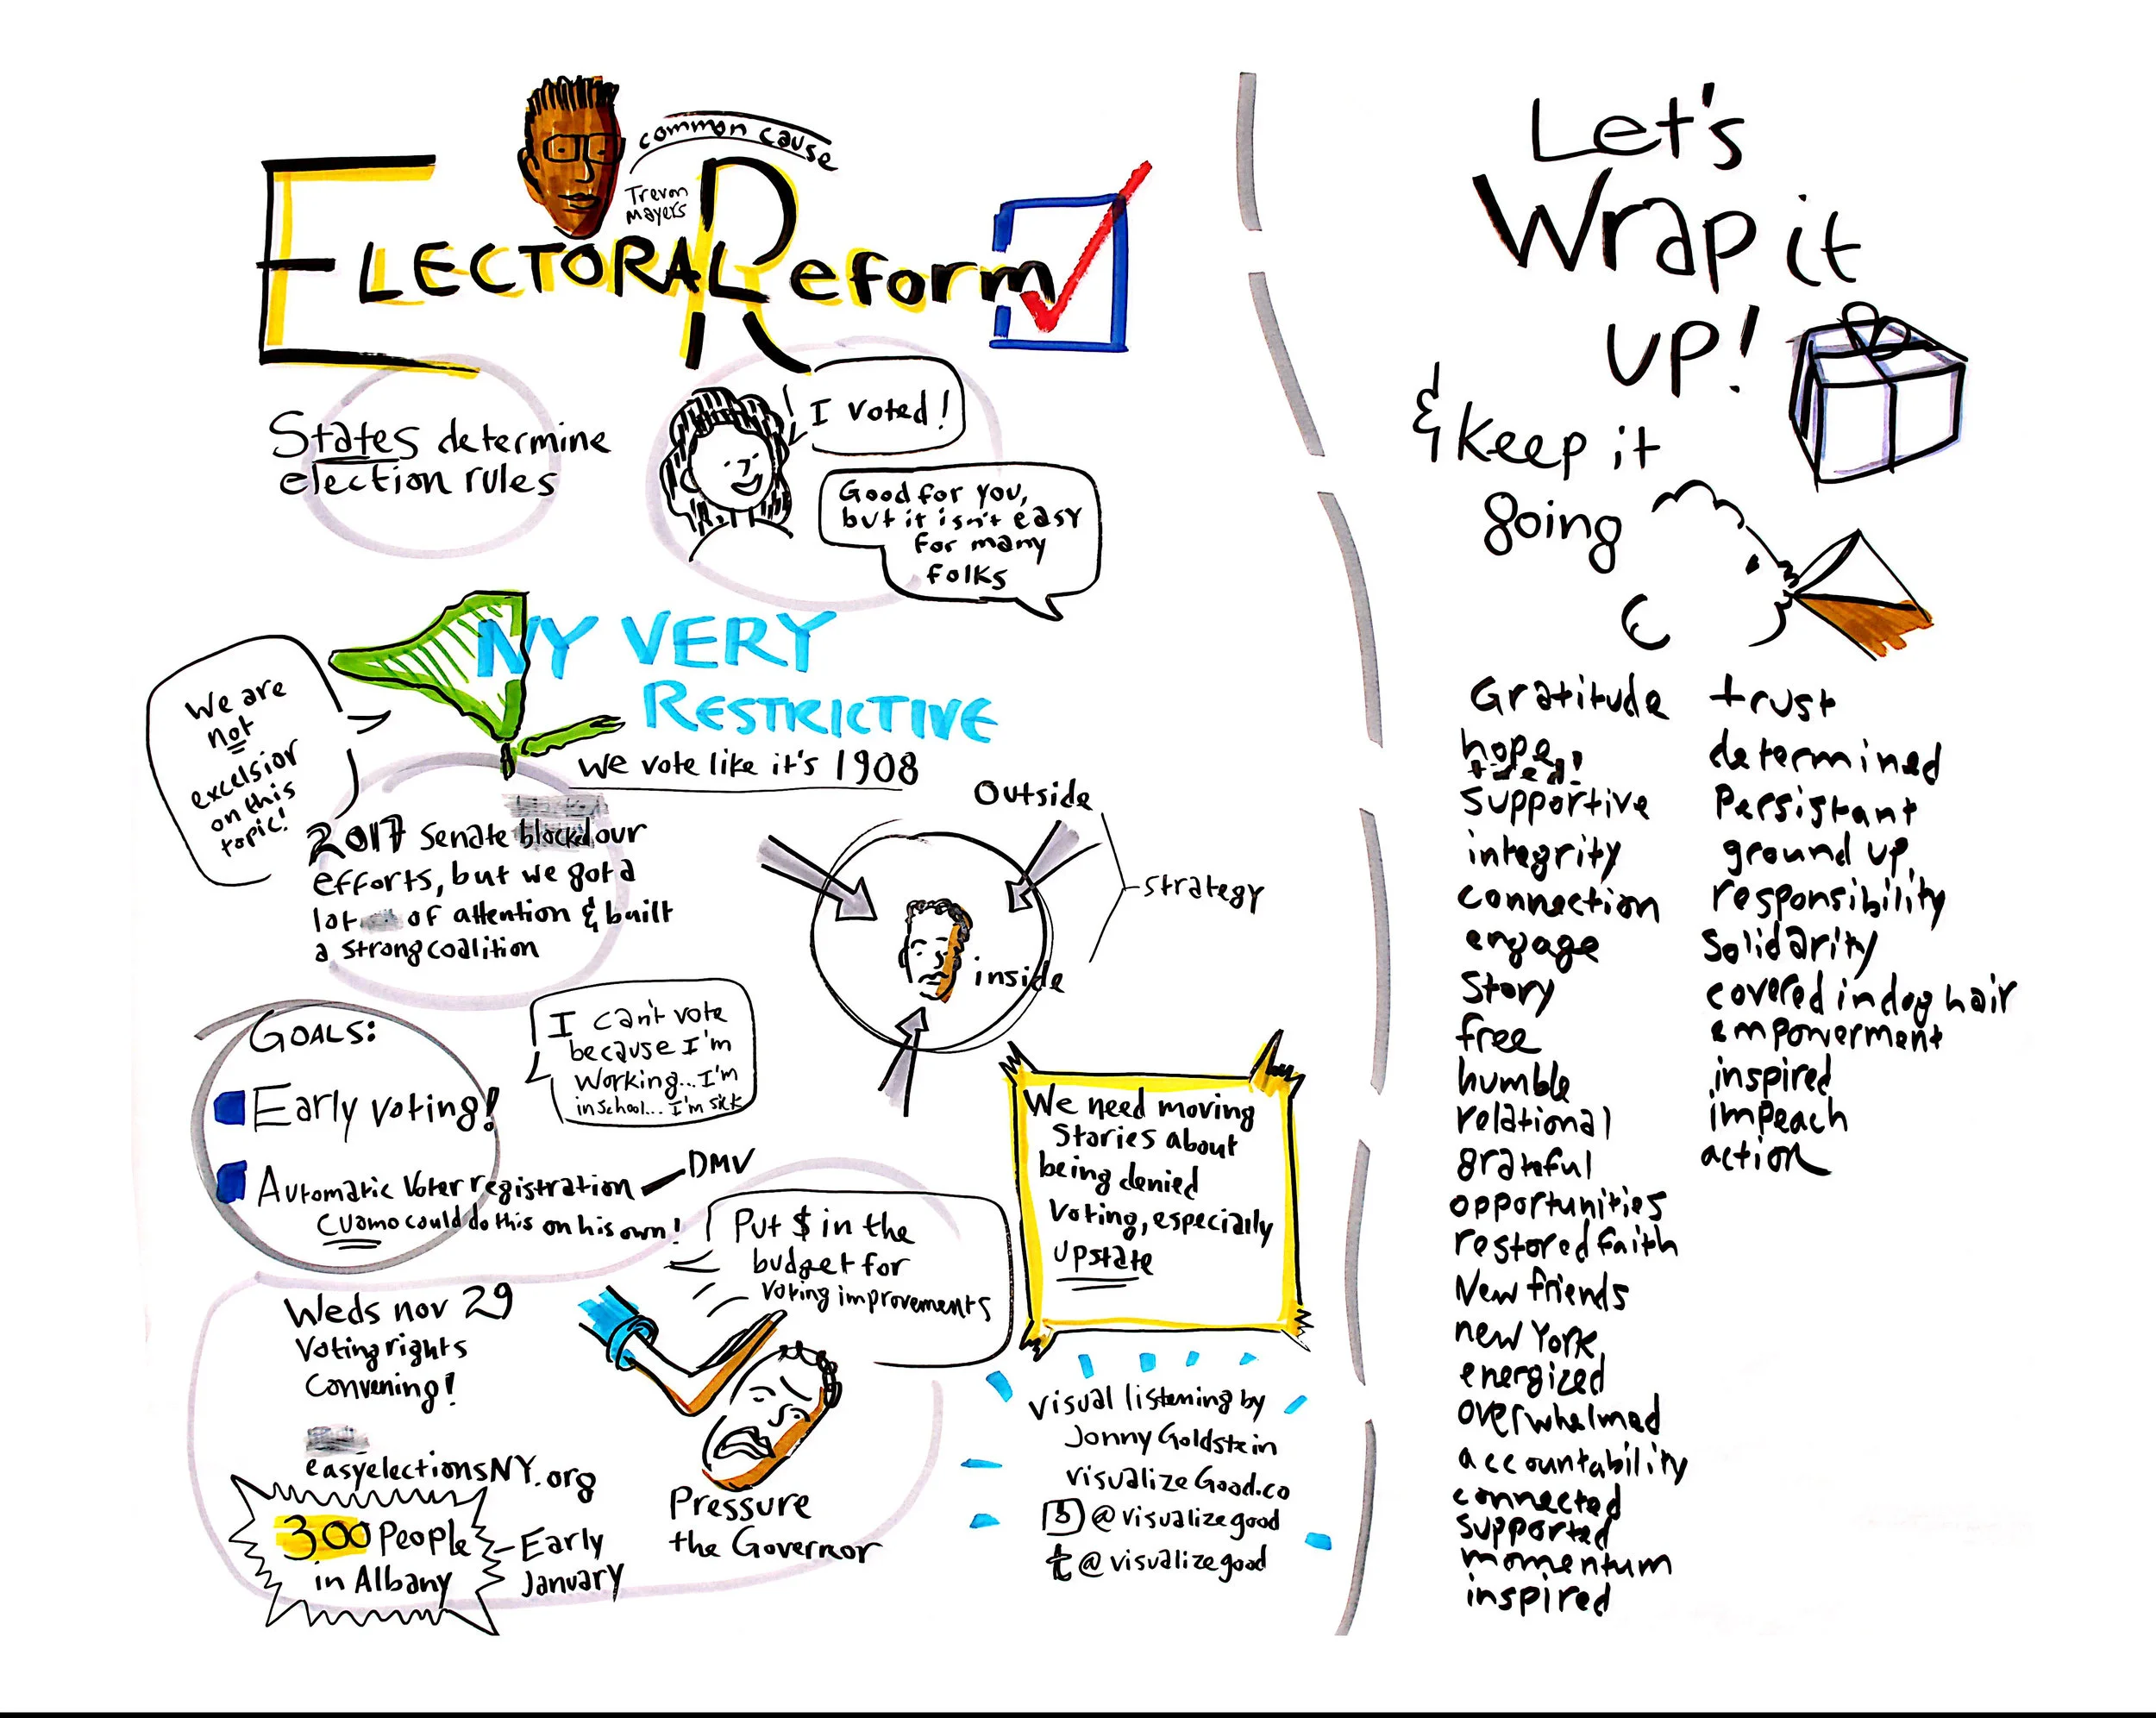 common cause
Trevon
Mayers
ELECTORAL Reform
States determine
election rules
I voted!
Good for you,
but it isn't easy
for many
folks
NY VERY
RESTRICTIVE
we vote like it's 1908
We are
not
excelsior
on this
topic!
2017 Senate blocked our
efforts, but we got a
lot of attention & built
a strong coalition
Outside
strategy
inside
GOALS:
Early voting!
Automatic Voter registration
DMV
Cuomo could do this on his own!
I can't vote
because I'm
working... I'm
in school... I'm sick
We need moving
stories about
being denied
voting, especially
upstate
Put $ in the
budget for
voting improvements
Weds nov 29
Voting rights
Convening!
easyelectionsNY.org
300 People
in Albany
Early
January
Pressure
the Governor
visual listening by
Jonny Goldstein
visualizeGood.co
@visualizegood
t @visualizegood
Let's
Wrap it
UP!
& keep it
going
Gratitude
hope
tired!
supportive
integrity
connection
engage
story
free
humble
relational
grateful
opportunities
restored faith
New friends
new York
energized
overwhelmed
accountability
connected
supported
momentum
inspired
trust
determined
Persistant
ground up
responsibility
Solidarity
covered in dog hair
empowerment
inspired
impeach
action